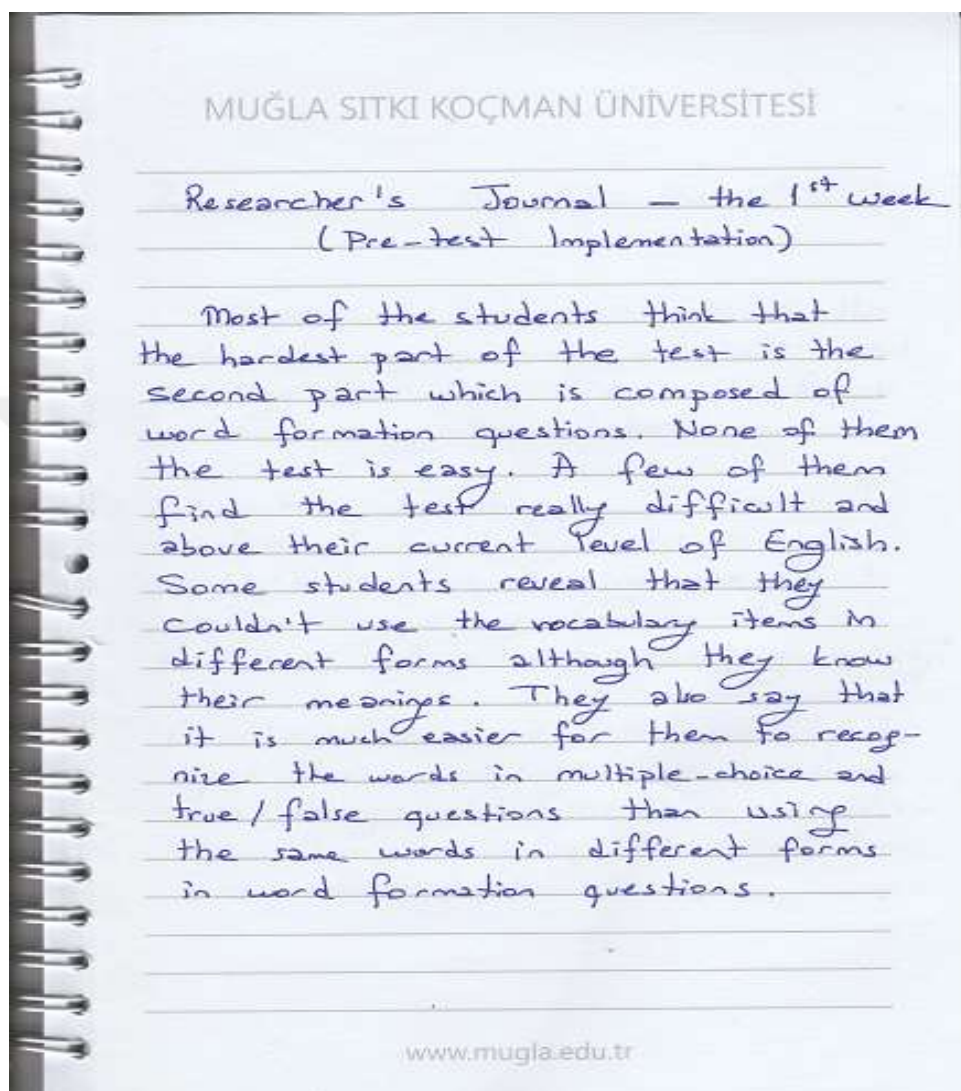 MUĞLA SITKI KOÇMAN ÜNİVERSİTESİ
Researcher's Journal – the 1st week
(Pre-test Implementation)
Most of the students think that
the hardest part of the test is the
second part which is composed of
word formation questions. None of them
the test is easy. A few of them
find the test really difficult and
above their current level of English.
Some students reveal that they
couldn't use the vocabulary items in
different forms although they know
their meanings. They also say that
it is much easier for them to recog-
nize the words in multiple-choice and
true / false questions than using
the same words in different forms
in word formation questions.
www.mugla.edu.tr